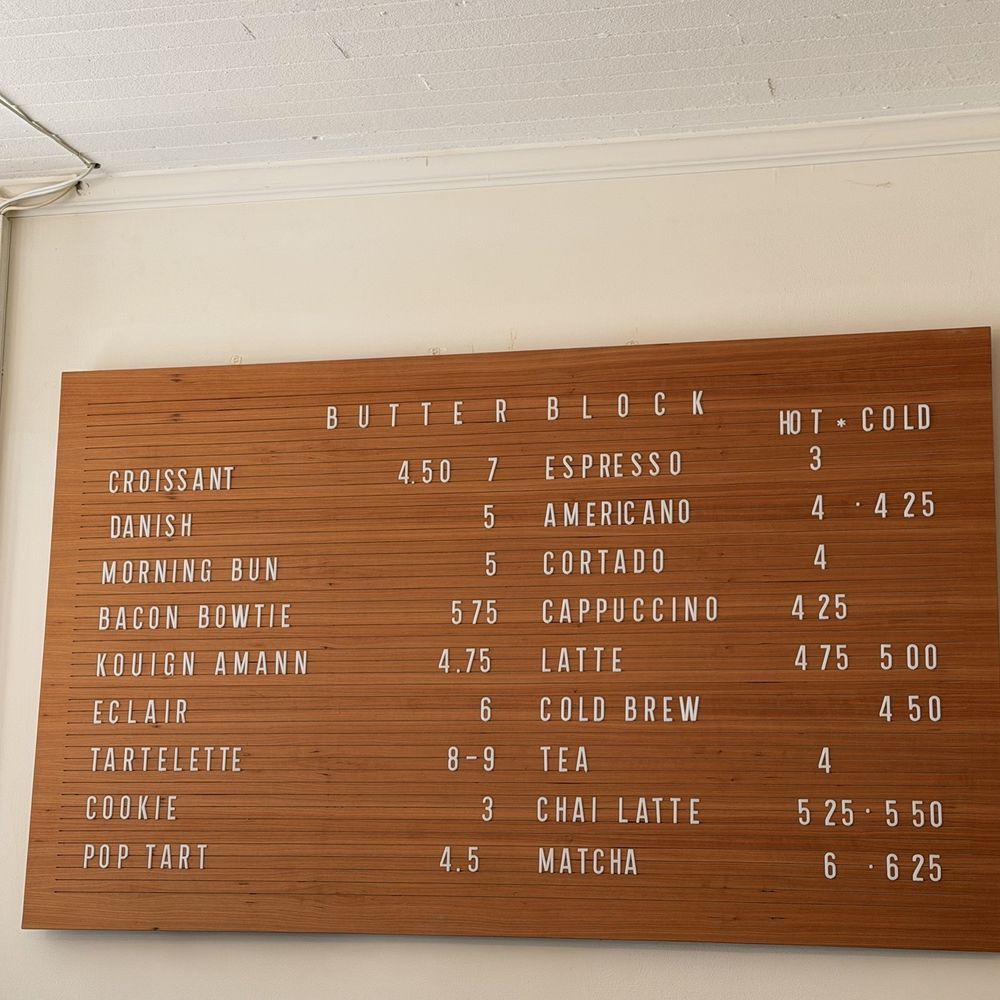 BUTTER BLOCK
HOT * COLD
CROISSANT 4.50 7
DANISH 5
MORNING BUN 5
BACON BOWTIE 5 75
KOUIGN AMANN 4.75
ECLAIR 6
TARTELETTE 8-9
COOKIE 3
POP TART 4.5
ESPRESSO 3
AMERICANO 4 · 4 25
CORTADO 4
CAPPUCCINO 4 25
LATTE 4 75 5 00
COLD BREW 4 50
TEA 4
CHAI LATTE 5 25 · 5 50
MATCHA 6 · 6 25